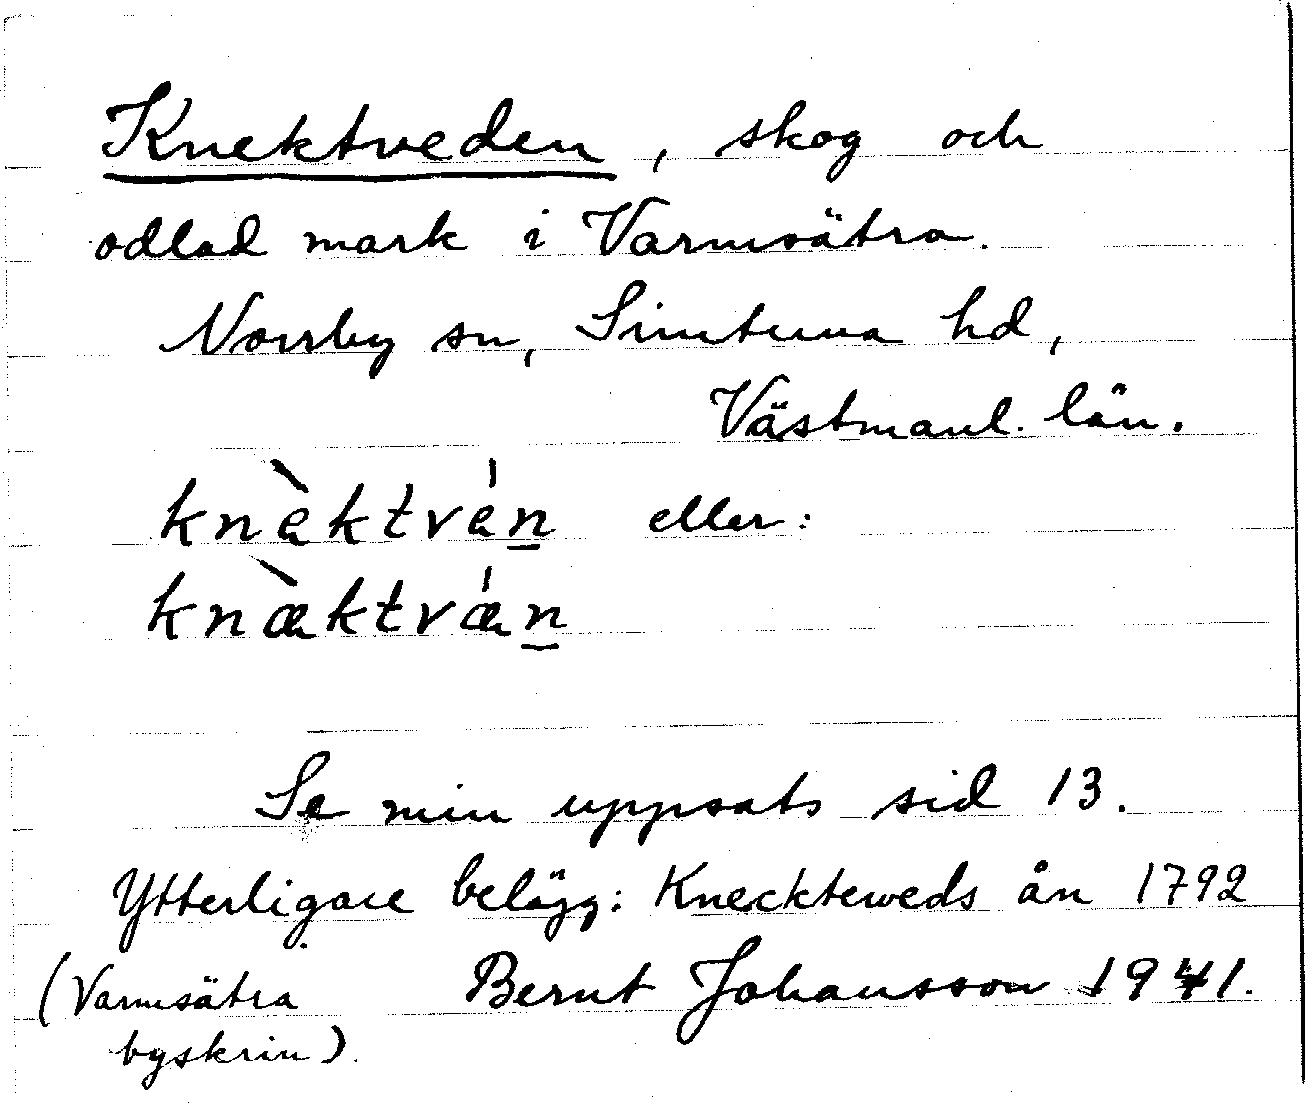 Knektveden, skog och
odlad mark i Varmsätra.
Norrby sn, Simtuna hd,
Västmanl. län.
knèktvén eller:
knæ̀ktvǽn
Se min uppsats sid 13.
Ytterligare belägg: Kneckteweds ån 1792
(Varmsätra
byskrin).
Bernt Johansson 1941.